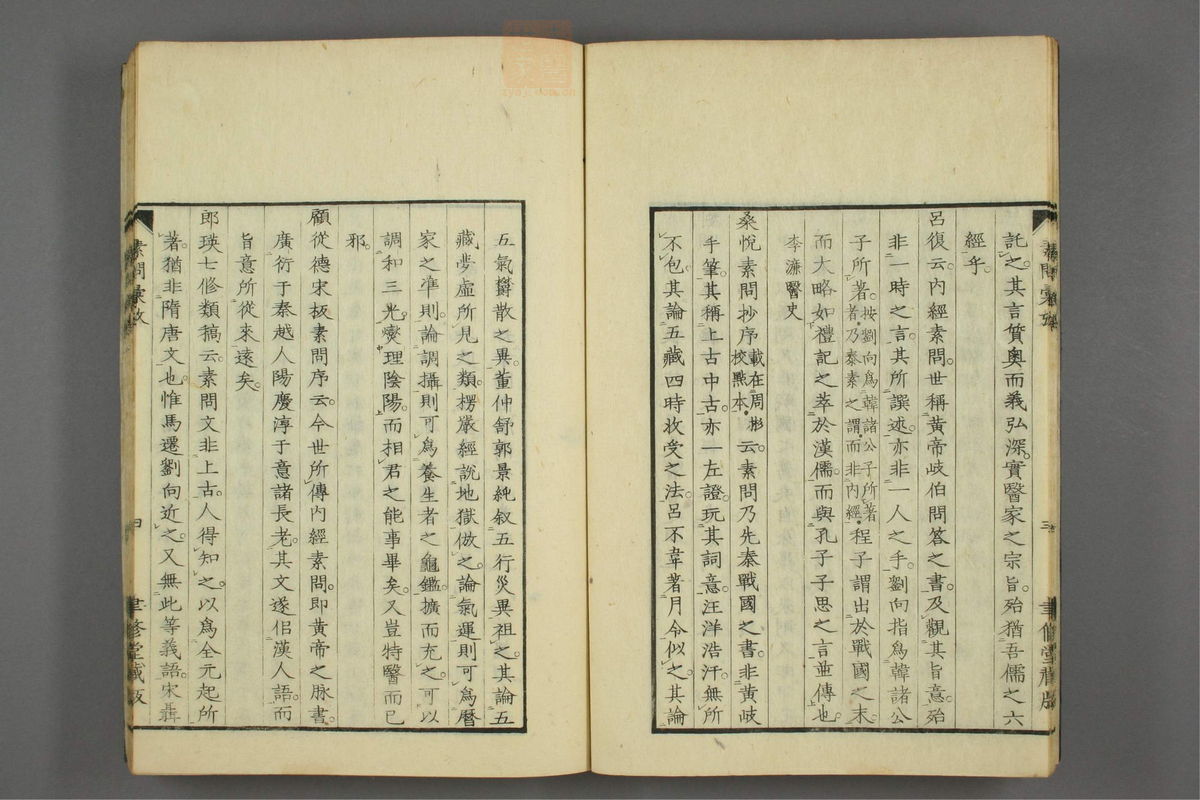 託之其言質奧而義弘深實醫家之宗旨殆猶吾儒之六
經乎
呂復云內經素問世稱黃帝岐伯問答之書及觀其旨意殆
非一時之言其所譔述亦非一人之手劉向指爲韓諸公
子所著按劉向爲韓諸公子所著者乃泰素之謂而非內經程子謂出於戰國之末
而大略如禮記之萃於漢儒而與孔子子思之言並傳也
李濂醫史
桑悅素問抄序載在周彬校點本云素問乃先秦戰國之書非黃岐
手筆其稱上古中古亦一左證玩其詞意汪洋浩汗無所
不包其論五藏四時收受之法呂不韋著月令似之其論
三
五氣欝散之異董仲舒郭景純叙五行災異祖之其論五
藏夢虛所見之類楞嚴經說地獄倣之論氣運則可爲曆
家之準則論調攝則可爲養生者之龜鑑擴而充之可以
調和三光燮理陰陽而相君之能事畢矣又豈特醫而已
邪
顧從德宋板素問序云今世所傳內經素問即黃帝之脉書
廣衍于秦越人陽慶淳于意諸長老其文遂佀漢人語而
旨意所從來遠矣
郎瑛七修類稿云素問文非上古人得知之以爲全元起所
著猶非隋唐文也惟馬遷劉向近之又無此等義語宋聶
素問彙攷
四